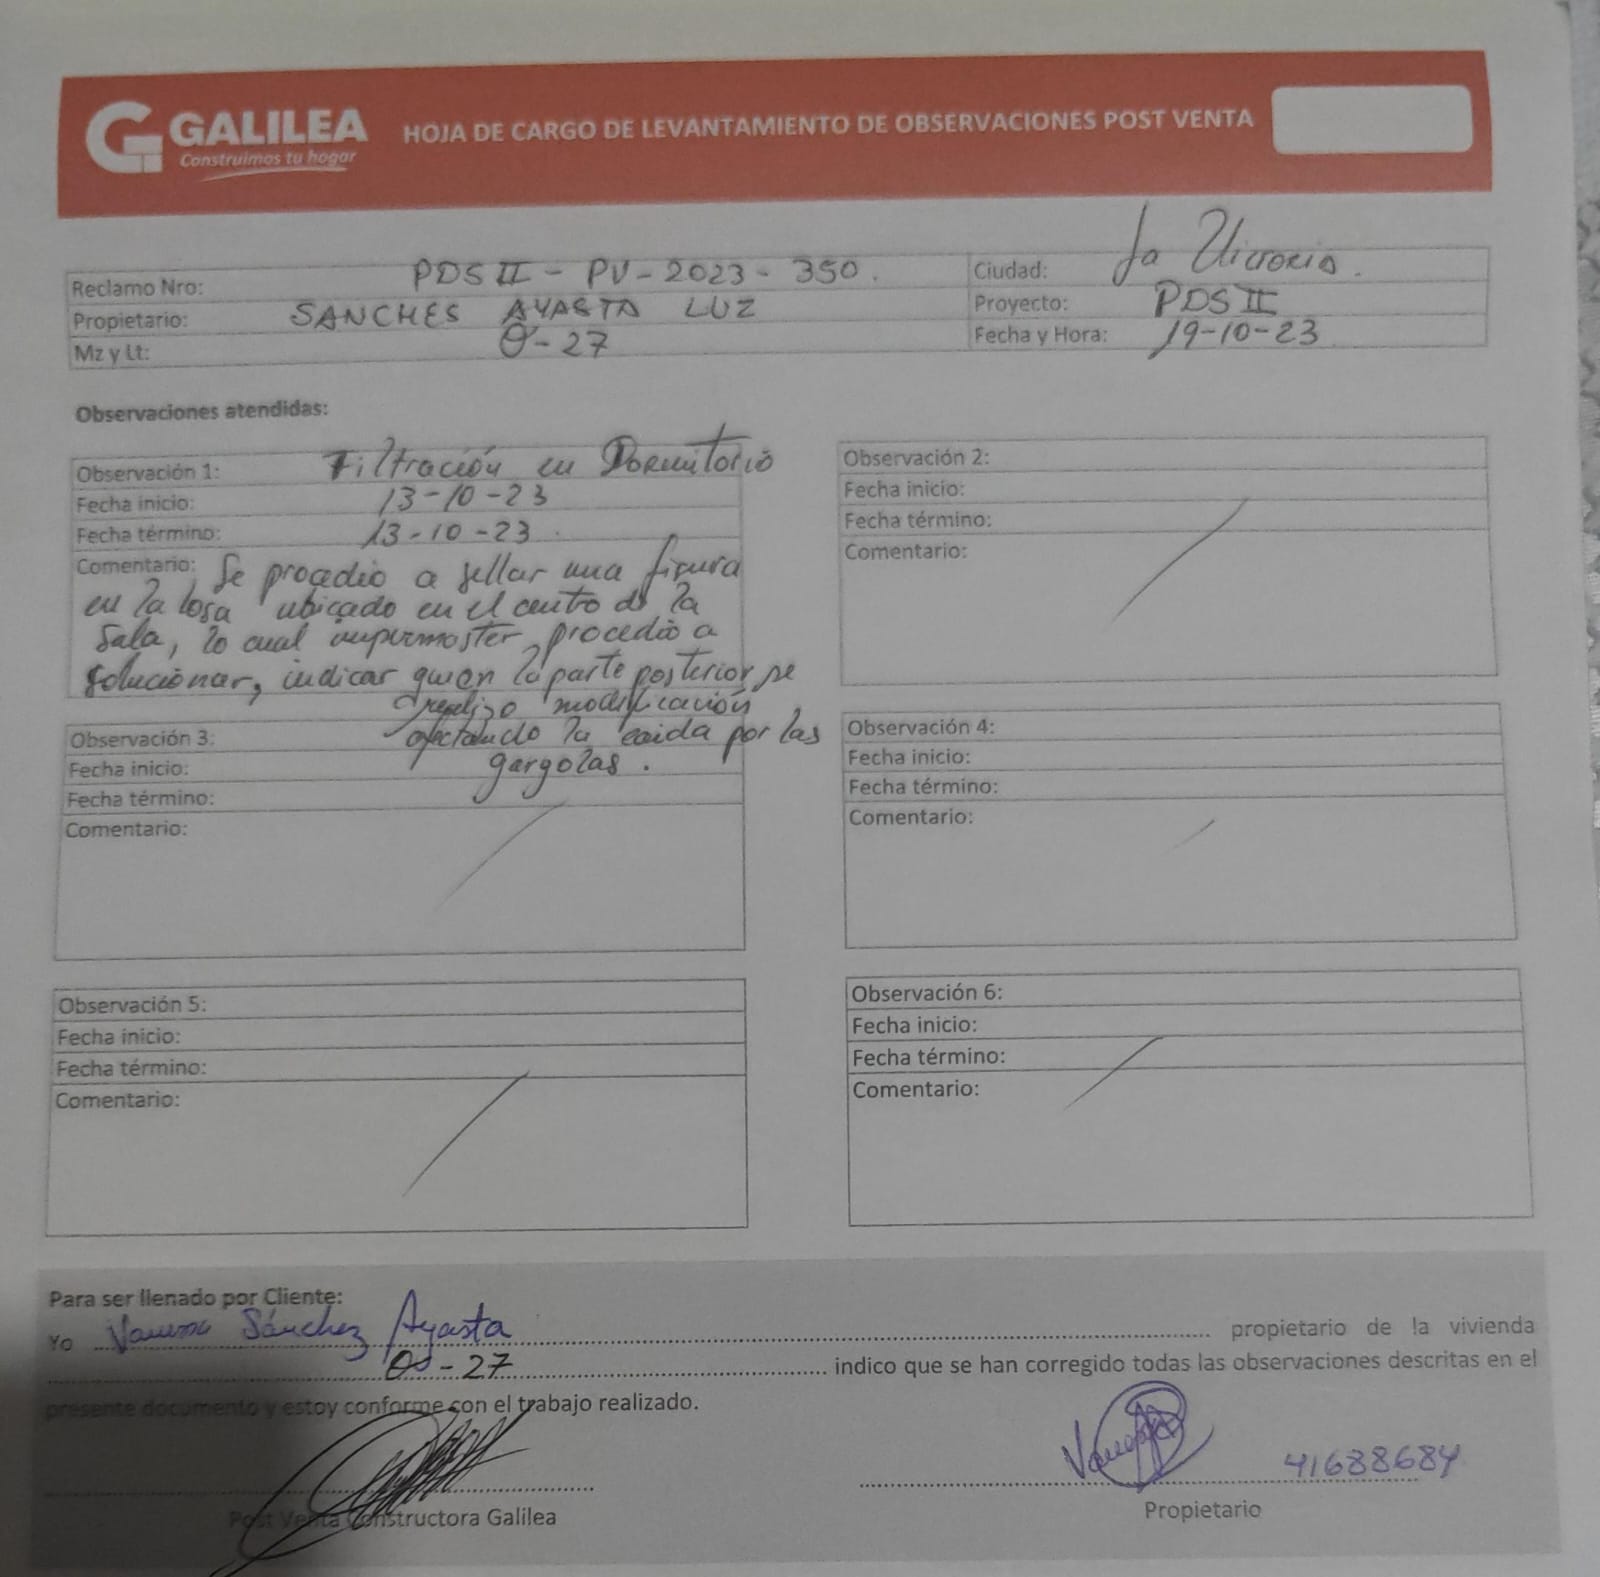 GALILEA
Construimos tu hogar
HOJA DE CARGO DE LEVANTAMIENTO DE OBSERVACIONES POST VENTA
Reclamo Nro: PDS II - PV - 2023 - 350.
Ciudad: La Victoria.
Propietario: SANCHES AYASTA LUZ
Proyecto: PDS II
Mz y Lt: O'- 27
Fecha y Hora: 19-10-23
Observaciones atendidas:
Observación 1: Filtración en Dormitorio
Fecha inicio: 13-10-23
Fecha término: 13-10-23.
Comentario: Se procedio a sellar una fisura
en la losa ubicado en el centro de la
Sala, lo cual impermaster procedio a
solucionar, indicar que en la parte posterior se
realizo modificación
afectando la caida por las
gargolas.
Observación 2:
Fecha inicio:
Fecha término:
Comentario:
Observación 3:
Fecha inicio:
Fecha término:
Comentario:
Observación 4:
Fecha inicio:
Fecha término:
Comentario:
Observación 5:
Fecha inicio:
Fecha término:
Comentario:
Observación 6:
Fecha inicio:
Fecha término:
Comentario:
Para ser llenado por Cliente:
Yo Sánchez Ayasta propietario de la vivienda
27 indico que se han corregido todas las observaciones descritas en el
presente documento y estoy conforme con el trabajo realizado.
41688684
Post Venta Constructora Galilea
Propietario